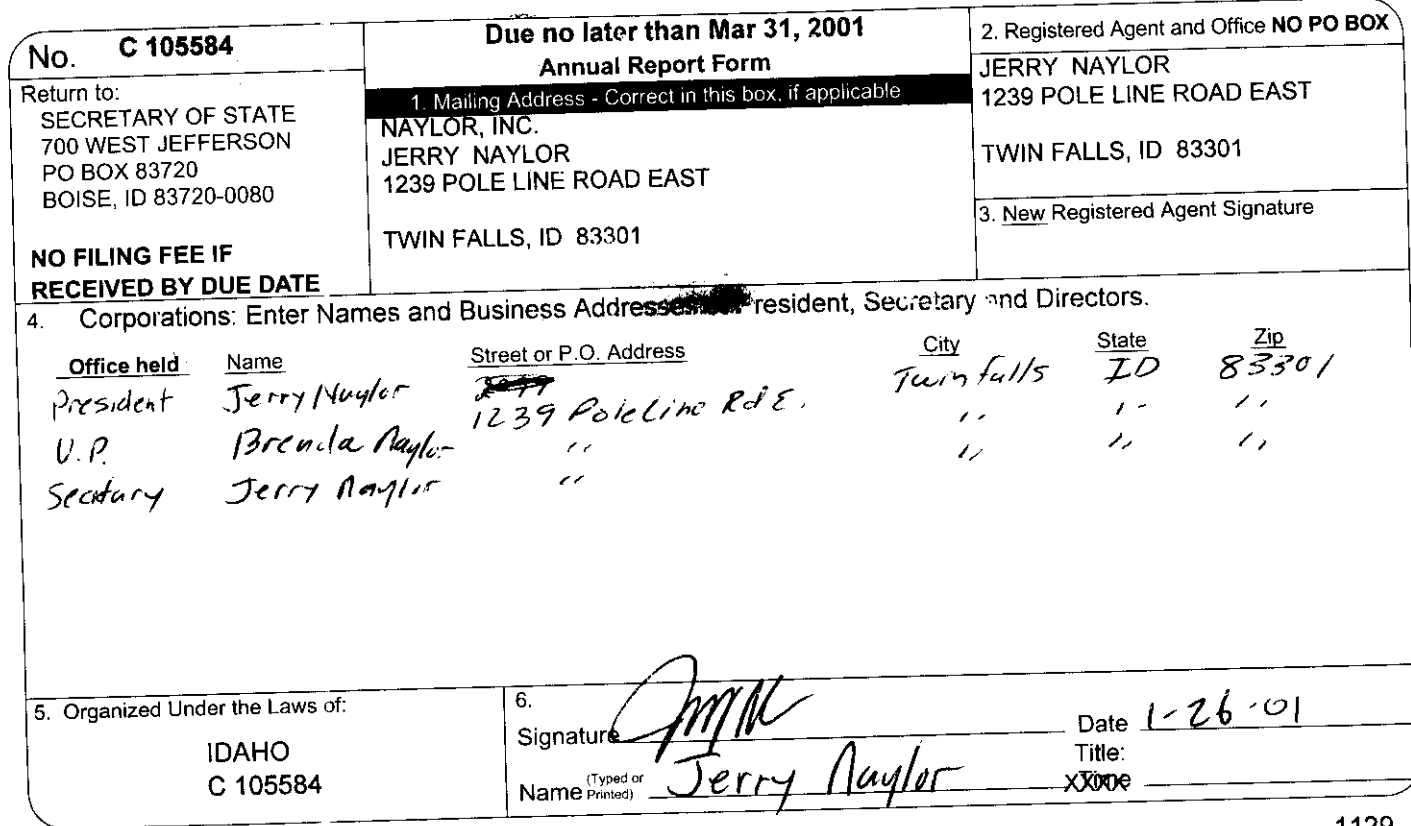 No. C 105584
Return to:
SECRETARY OF STATE
700 WEST JEFFERSON
PO BOX 83720
BOISE, ID 83720-0080
NO FILING FEE IF
RECEIVED BY DUE DATE
Due no later than Mar 31, 2001
Annual Report Form
1. Mailing Address - Correct in this box, if applicable
NAYLOR, INC.
JERRY NAYLOR
1239 POLE LINE ROAD EAST
TWIN FALLS, ID 83301
2. Registered Agent and Office NO PO BOX
JERRY NAYLOR
1239 POLE LINE ROAD EAST
TWIN FALLS, ID 83301
3. New Registered Agent Signature
4. Corporations: Enter Names and Business Addresses President, Secretary and Directors.
Office held Name Street or P.O. Address City State Zip
President Jerry Naylor 1239 Pole Line Rd E. Twin falls ID 83301
V.P. Brenda Naylor " " " "
Secretary Jerry Naylor " " " "
5. Organized Under the Laws of:
IDAHO
C 105584
6.
Signature Date 1-26-01
Name (Typed or Printed) Jerry Naylor Title:
1129